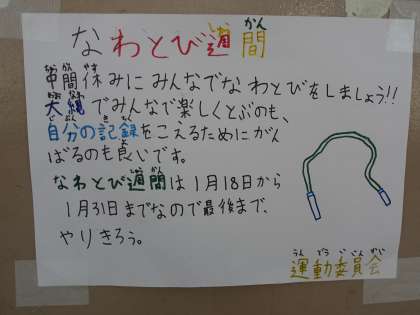 なわとび週間
中間休みにみんなでなわとびをしましょう!!
大縄でみんなで楽しくとぶのも、
自分の記録をこえるためにがん
ばるのも良いです。
なわとび週間は1月18日から
1月31日までなので最後まで、
やりきろう。
運動委員会